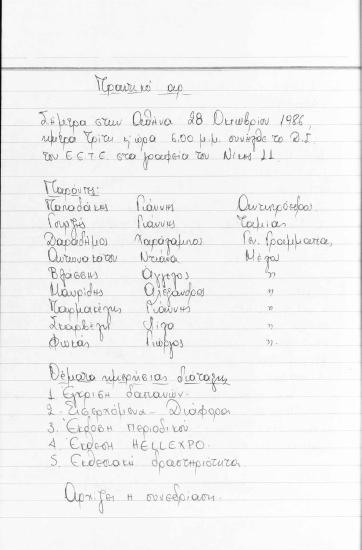 Πρακτικό αρ
Σήμερα στην Αθήνα 28 Οκτωβρίου 1986,
ημέρα Τρίτη κι ώρα 6.00 μ.μ. συνήλθε το Δ.Σ
του Ε.Ε.Τ.Ε. στα γραφεία του Νίκης 11
Παρόντες:
Παπαδάκης Γιάννης Αντιπρόεδρος
Γουρζής Γιάννης Ταμίας
Δαραδήμος Χαράλαμπος Γεν. Γραμματέας
Αντωνάτου Ντιάνα Μέλος
Βλάσσης Άγγελος "
Μαυρίδης Αλέξανδρος "
Παρμακέλης Γιάννης "
Λίζα "
Φωκάς Γιώργος "
Θέματα ημερήσιας διάταξης
1 Έγκριση δαπανών.
2. Εισερχόμενα - Διάφορα
3. Έκδοση περιοδικού
4. Έκθεση HELLEXPO.
5. Εκθεσιακή δραστηριότητα
Αρχίζει η συνεδρίαση.